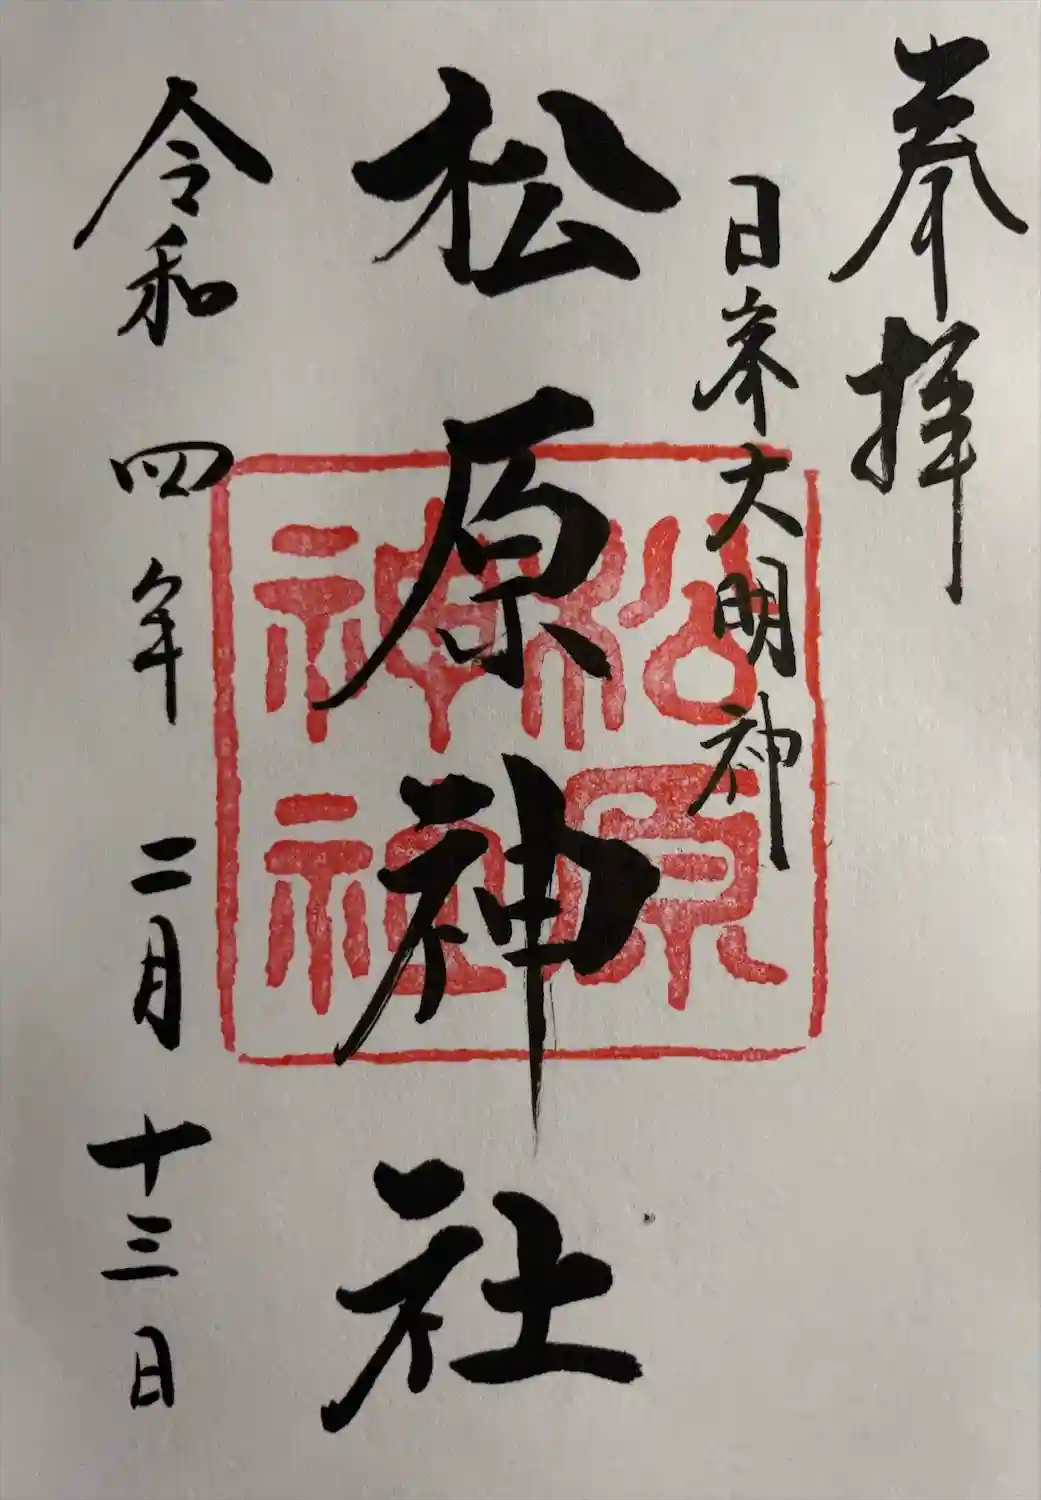 奉拝
日峯大明神
松原神社
令和四年二月十三日
松原
神社